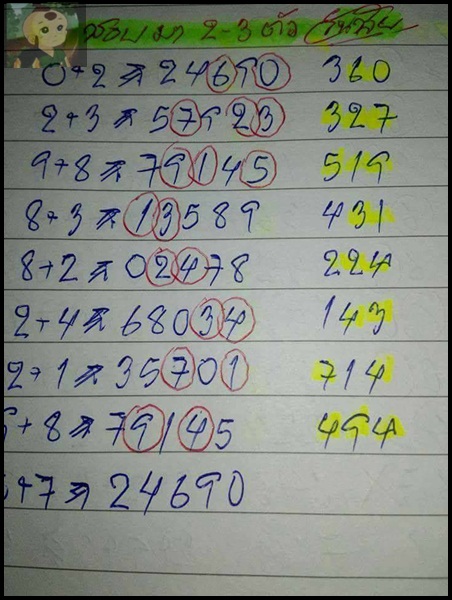 มา 2-3 ตัว
0+2 => 24690 360
2+3 => 57923 327
9+8 => 79145 519
8+3 => 13589 431
8+2 => 02478 224
2+4 => 68034 143
2+1 => 35701 714
+8 => 79145 494
+7 => 24690